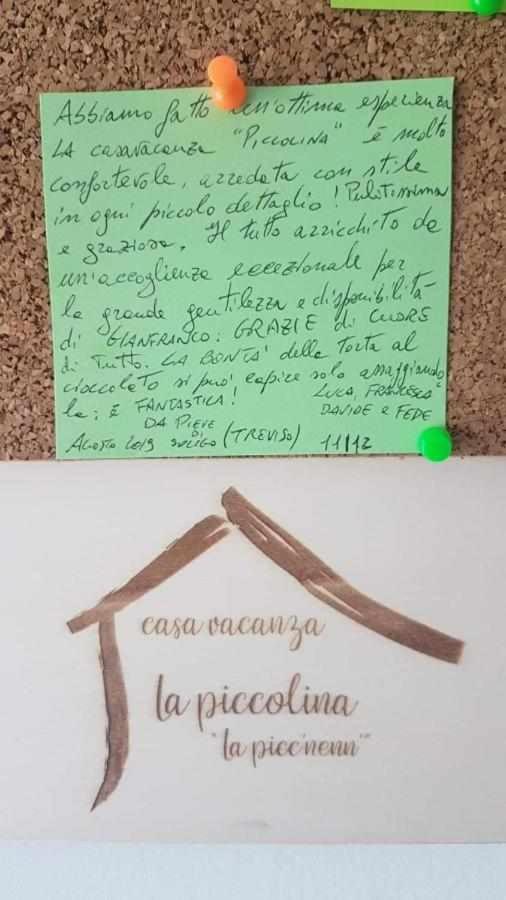 Abbiamo fatto un'ottima esperienza
LA casavacanza "PICCOLINA" è molto
confortevole, arredata con stile
in ogni piccolo dettaglio! Pulitissima
e graziosa. Il tutto arricchito da
un'accoglienza eccezionale per
la grande gentilezza e disponibilità
di GIANFRANCO: GRAZIE di CUORE
di Tutto. LA BONTA' della torta al
cioccolato si può capire solo assaggiando
la: È FANTASTICA!
LUCA, FRANCESCA
DAVIDE e FEDE
DA PIEVE
DI
AGOSTO 2019 SOLIGO (TREVISO) 11/12
casa vacanza
la piccolina
"la picc'nenn"